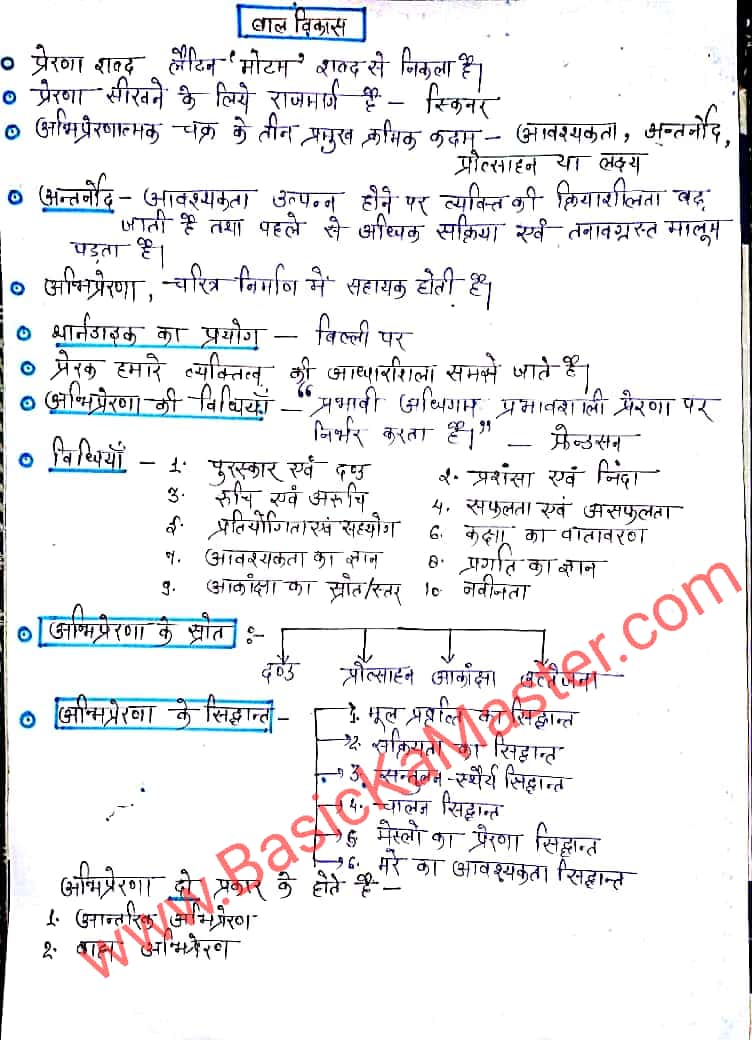 बाल विकास
प्रेरणा शब्द लैटिन 'मोटम' शब्द से निकला है।
प्रेरणा सीखने के लिये राजमार्ग है – स्किनर
अभिप्रेरणात्मक चक्र के तीन प्रमुख क्रमिक कदम – आवश्यकता, अन्तर्नोद,
प्रोत्साहन या लक्ष्य
अन्तर्नोद – आवश्यकता उत्पन्न होने पर व्यक्ति की क्रियाशीलता बढ़
जाती है तथा पहले से अधिक सक्रिया एवं तनावग्रस्त मालूम
पड़ता है।
अभिप्रेरणा, चरित्र निर्माण में सहायक होती है।
थार्नडाइक का प्रयोग – बिल्ली पर
प्रेरक हमारे व्यक्तित्व की आधारशिला समझे जाते है।
अभिप्रेरणा की विधियाँ – "प्रभावी अधिगम प्रभावशाली प्रेरणा पर
निर्भर करता है।" – फ्रेन्डसन
विधियाँ – 1. पुरस्कार एवं दण्ड 2. प्रशंसा एवं निंदा
3. रूचि एवं अरूचि 4. सफलता एवं असफलता
5. प्रतियोगिता एवं सहयोग 6. कक्षा का वातावरण
7. आवश्यकता का ज्ञान 8. प्रगति का ज्ञान
9. आकांक्षा का स्रोत/स्तर 10. नवीनता
अभिप्रेरणा के स्रोत :-
दण्ड प्रोत्साहन आकांक्षा उत्तेजना
अभिप्रेरणा के सिद्धान्त –
1. मूल प्रवृत्ति का सिद्धान्त
2. सक्रियता का सिद्धान्त
3. सन्तुलन-स्थैर्य सिद्धान्त
4. चालन सिद्धान्त
5. मेस्लो का प्रेरणा सिद्धान्त
6. मरे का आवश्यकता सिद्धान्त
अभिप्रेरणा दो प्रकार के होते है –
1. आन्तरिक अभिप्रेरण
2. बाह्य अभिप्रेरण
www.BasicKaMaster.com